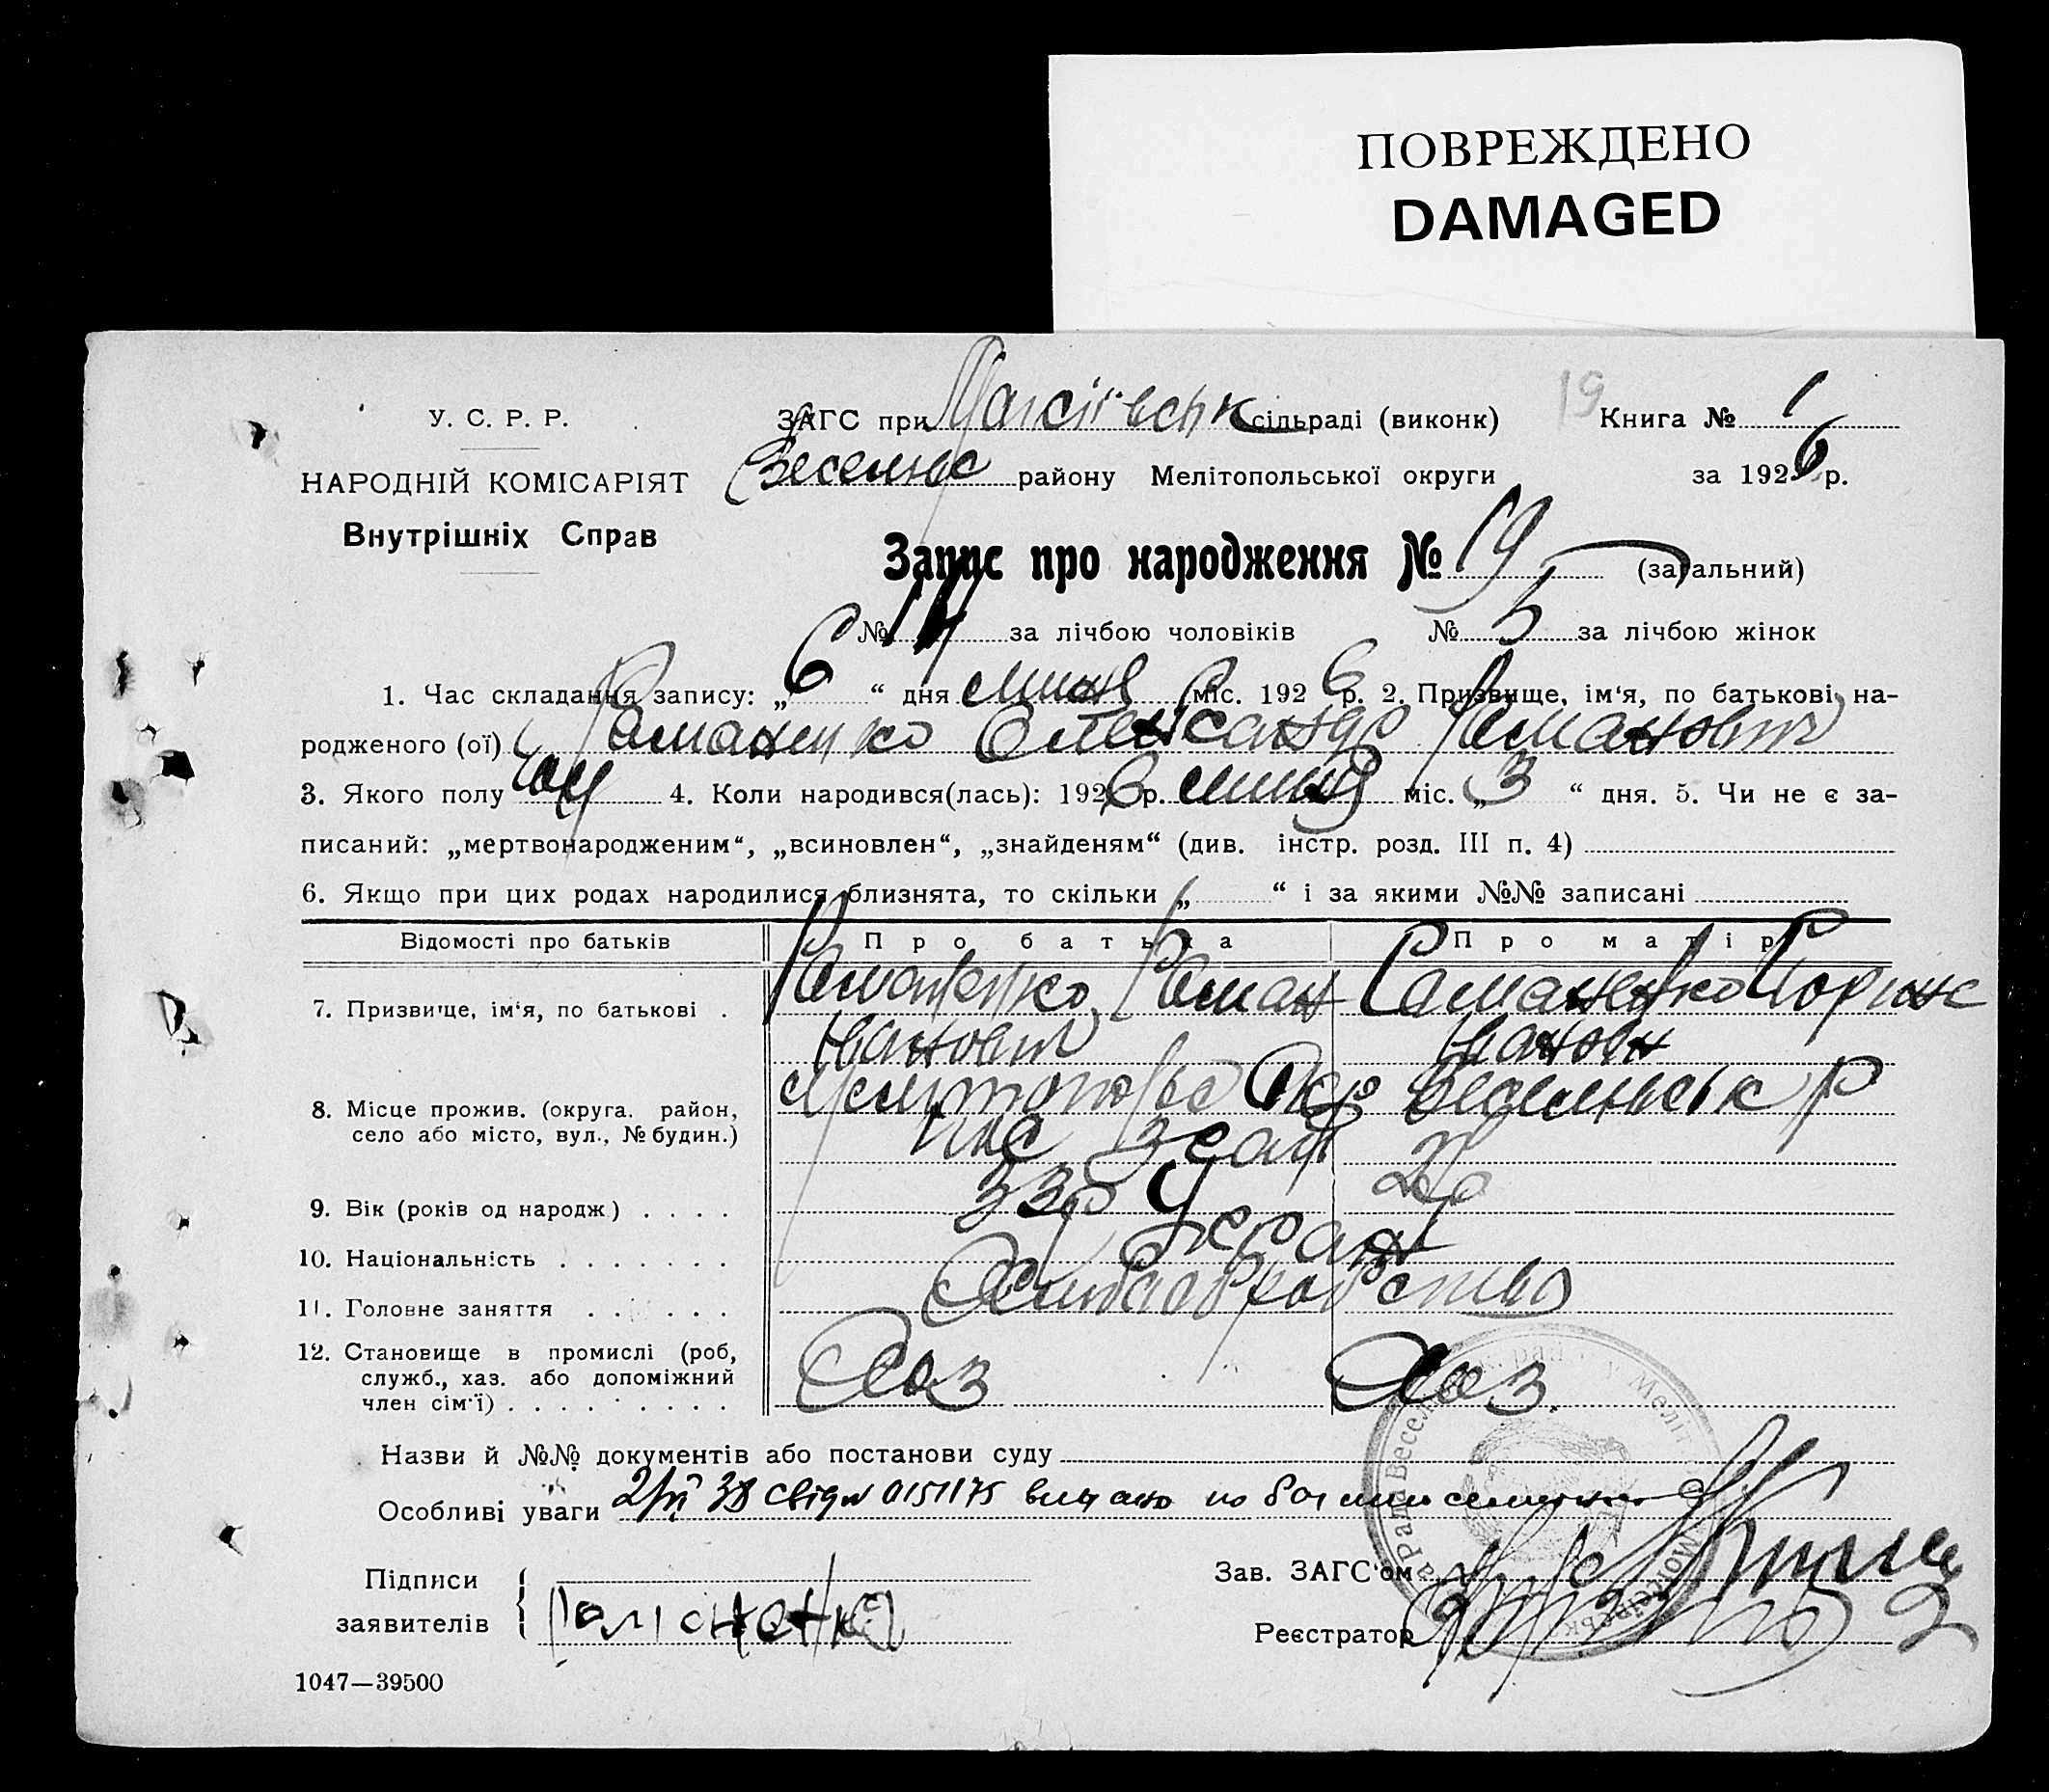 ПОВРЕЖДЕНО
DAMAGED
У. С. Р. Р.
НАРОДНІЙ КОМІСАРІЯТ
Внутрішніх Справ
ЗАГС при сільраді (виконк)
району Мелітопольської округи
19
Книга № 1
за 1926 р.
Запис про народження № 19 (загальний)
№ 14 за лічбою чоловіків № 5 за лічбою жінок
1. Час складання запису: „6“ дня міс. 1926 р. 2. Призвище, ім‘я, по батькові на-
родженого (ої) Романенко Олександр Романович
3. Якого полу чол 4. Коли народився(лась): 1926 р. міс. „3“ дня. 5. Чи не є за-
писаний: „мертвонародженим“, „всиновлен“, „знайденям“ (див. інстр. розд. III п. 4)
6. Якщо при цих родах народилися близнята, то скільки „ “ і за якими №№ записані
Відомості про батьків Про батька Про матір
7. Призвище, ім‘я, по батькові . Романенко Роман Романенко
Иванович Иванов
8. Місце прожив. (округа. район,
село або місто, вул., № будин.)
9. Вік (років од народж) . . . . 33р
10. Національність . . . . . . . Украй
11. Головне заняття . . . . . . Хліборобство
12. Становище в промислі (роб,
служб., хаз. або допоміжний
член сім‘ї) . . . . . . . . . Хоз Хоз.
Назви й №№ документів або постанови суду
Особливі уваги 38 0151175
Підписи
заявителів Романенко
Зав. ЗАГС‘ом
Реєстратор
1047—39500